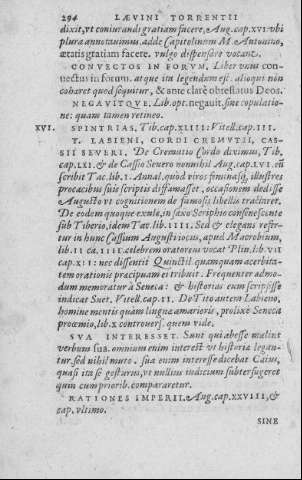 294 LÆVINI TORRENTII
dixit, vt coniurandi gratiam facere, Aug. cap. XVI. vbi
plura annotauimus. adde Capitolinum M. Antonino,
ætatis gratiam facere. vulgo dispensare vocant.
CONVECTOS IN FORVM. Liber vnus con-
uectus in forum. atque ita legendum est. alioqui non
cohæret quod sequitur, & ante clarè obtestatus Deos.
NEGAVITQVE. Lib. opt. negauit, sine copulatio-
ne: quam tamen retineo.
XVI. SPINTRIAS. Tib. cap. XLIII: Vitell. cap. III.
T. LABIENI, CORDI CREMVTII, CAS-
SII SEVERI. De Cremutio Cordo diximus, Tib.
cap. LXI. & de Cassio Seuero nonnihil Aug. cap. LVI. eū
scribit Tac. lib. I. Annal. quod viros feminasq́; illustres
procacibus suis scriptis diffamasset, occasionem dedisse
Augusto vt cognitionem de famosis libellis traderet.
De eodem quoque exule, in saxo Seriphio consenescente
sub Tiberio, idem Tac. lib. IIII. Sed & elegans refer-
tur in hunc Cassium Augusti iocus, apud Macrobium,
lib. II ca. IIII. celebrem oratorem vocat Plin. lib. VII
cap. XII: nec dissentit Quinctil. quemquam acerbita-
tem orationis præcipuam ei tribuit. Frequenter admo-
dum memoratur à Seneca: & historias eum scripsisse
indicat Suet. Vitell. cap. II. De Tito autem Labieno,
homine mentis quàm linguæ amarioris, prolixè Seneca
proœmio, lib. X controuers. quem vide.
SVA INTERESSET. Sunt qui abesse malint
verbum sua. omnium enim interest vt historia legan-
tur. sed nihil muto. sua enim interesse dicebat Caius,
quasi ita se gesturus, vt nullius iudicium subterfugeret
quin cum priorib. compararetur.
RATIONES IMPERII. Aug. cap. XXVIII, &
cap. vltimo.
SINE